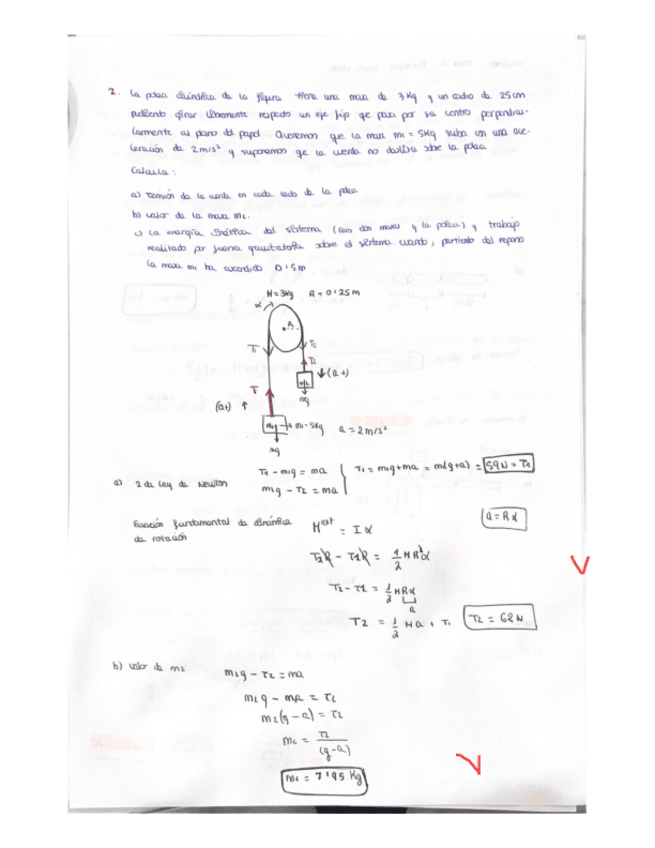 2. La polea cilíndrica de la figura tiene una masa de 3 Kg y un radio de 25 cm
pudiendo girar libremente respecto un eje fijo que pasa por su centro perpendicu-
larmente al plano del papel. Queremos que la masa m1 = 5Kg suba con una ace-
leración de 2 m/s² y suponemos que la cuerda no desliza sobre la polea
Calcula:
a) Tensión de la cuerda en cada lado de la polea
b) valor de la masa m2.
c) La energía cinética del sistema (las dos masas y la polea) y trabajo
realizado por fuerza gravitatoria sobre el sistema cuando, partiendo del reposo
la masa m1 ha ascendido 0'5m
M = 3Kg R = 0'25 m
α
R
T1 T2
T2
↓(a+)
m2
mg
T
(a+) ↑
m1 = 5Kg a = 2 m/s²
mg
a) 2da Ley de Newton
T1 - m1g = ma
m2g - T2 = ma
T1 = m1g + ma = m(g+a) = 59N = T1
Ecuación fundamental de dinámica
de rotación
a = Rα
M^ext = Iα
T2R - T1R = 1/2 MR²α
T2 - T1 = 1/2 MRα
a
T2 = 1/2 Ma + T1
T2 = 62N
b) valor de m2
m2g - T2 = ma
m2g - ma = T2
m2(g-a) = T2
m2 = T2/(g-a)
m2 = 7'95 Kg